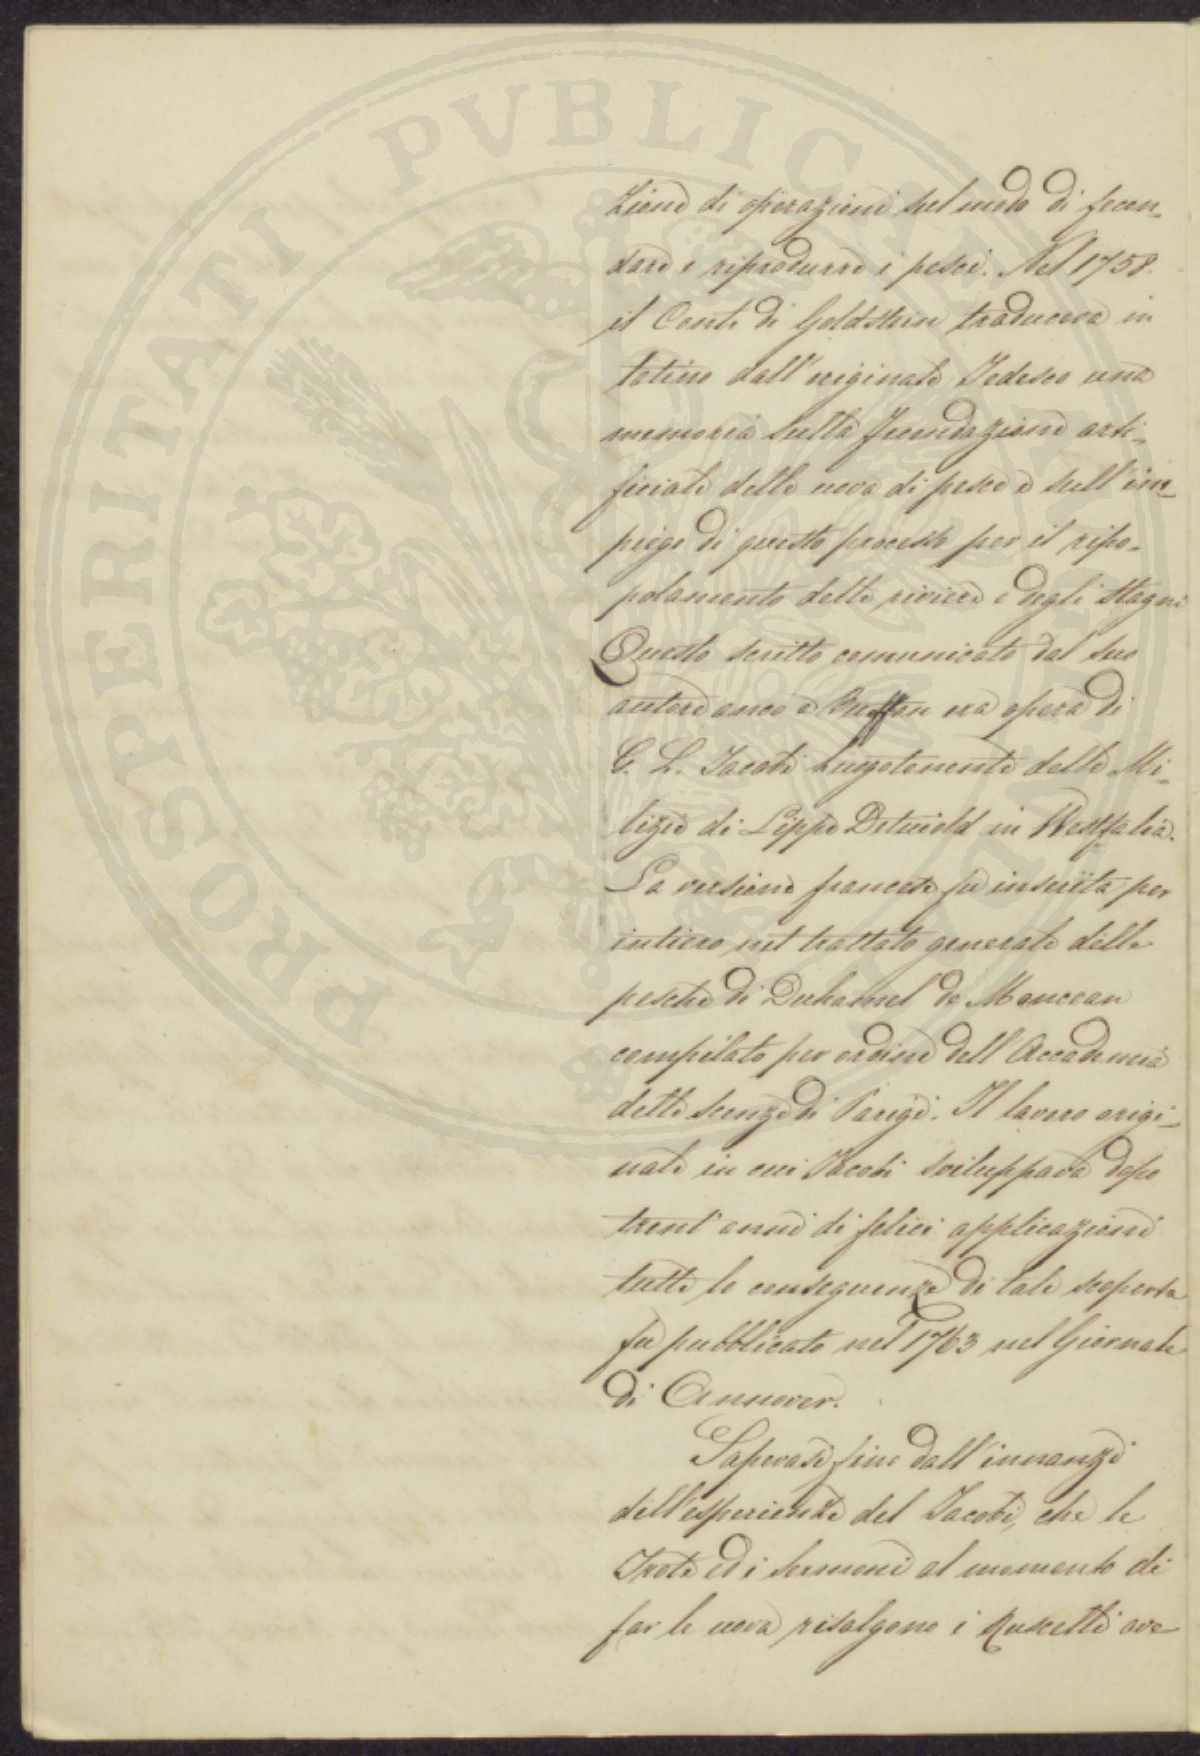 PROSPERITATI PVBLICAE
zione di operazioni sul modo di fecon-
dare e riprodurre i pesci. Nel 1758.
il Conte di Goldstein traduceva in
latino dall'originale Tedesco una
memoria sulla fecondazione arti-
ficiale delle uova di pesce e sull'im-
piego di questo processo per il ripo-
polamento delle riviere e degli stagni
Questo scritto comunicato dal suo
autore anco a Buffon era opera di
C. L. Jacobi Luogotenente delle Mi-
lizie di Lippe Detmold in Westfalia.
La versione francese fu inserita per
intiero nel trattato generale delle
pesche di Duhamel de Monceau
compilato per ordine dell'Accademia
delle scienze di Parigi. Il lavoro origi-
nale in cui Jacobi sviluppava dopo
trent'anni di felici applicazioni
tutte le conseguenze di tale scoperta
fu pubblicato nel 1763 nel Giornale
di Annover.
Sapevasi fin dall'innanzi
dell'esperienze del Jacobi, che le
Trote ed i sermoni al momento di
far le uova risalgono i Ruscelli ove